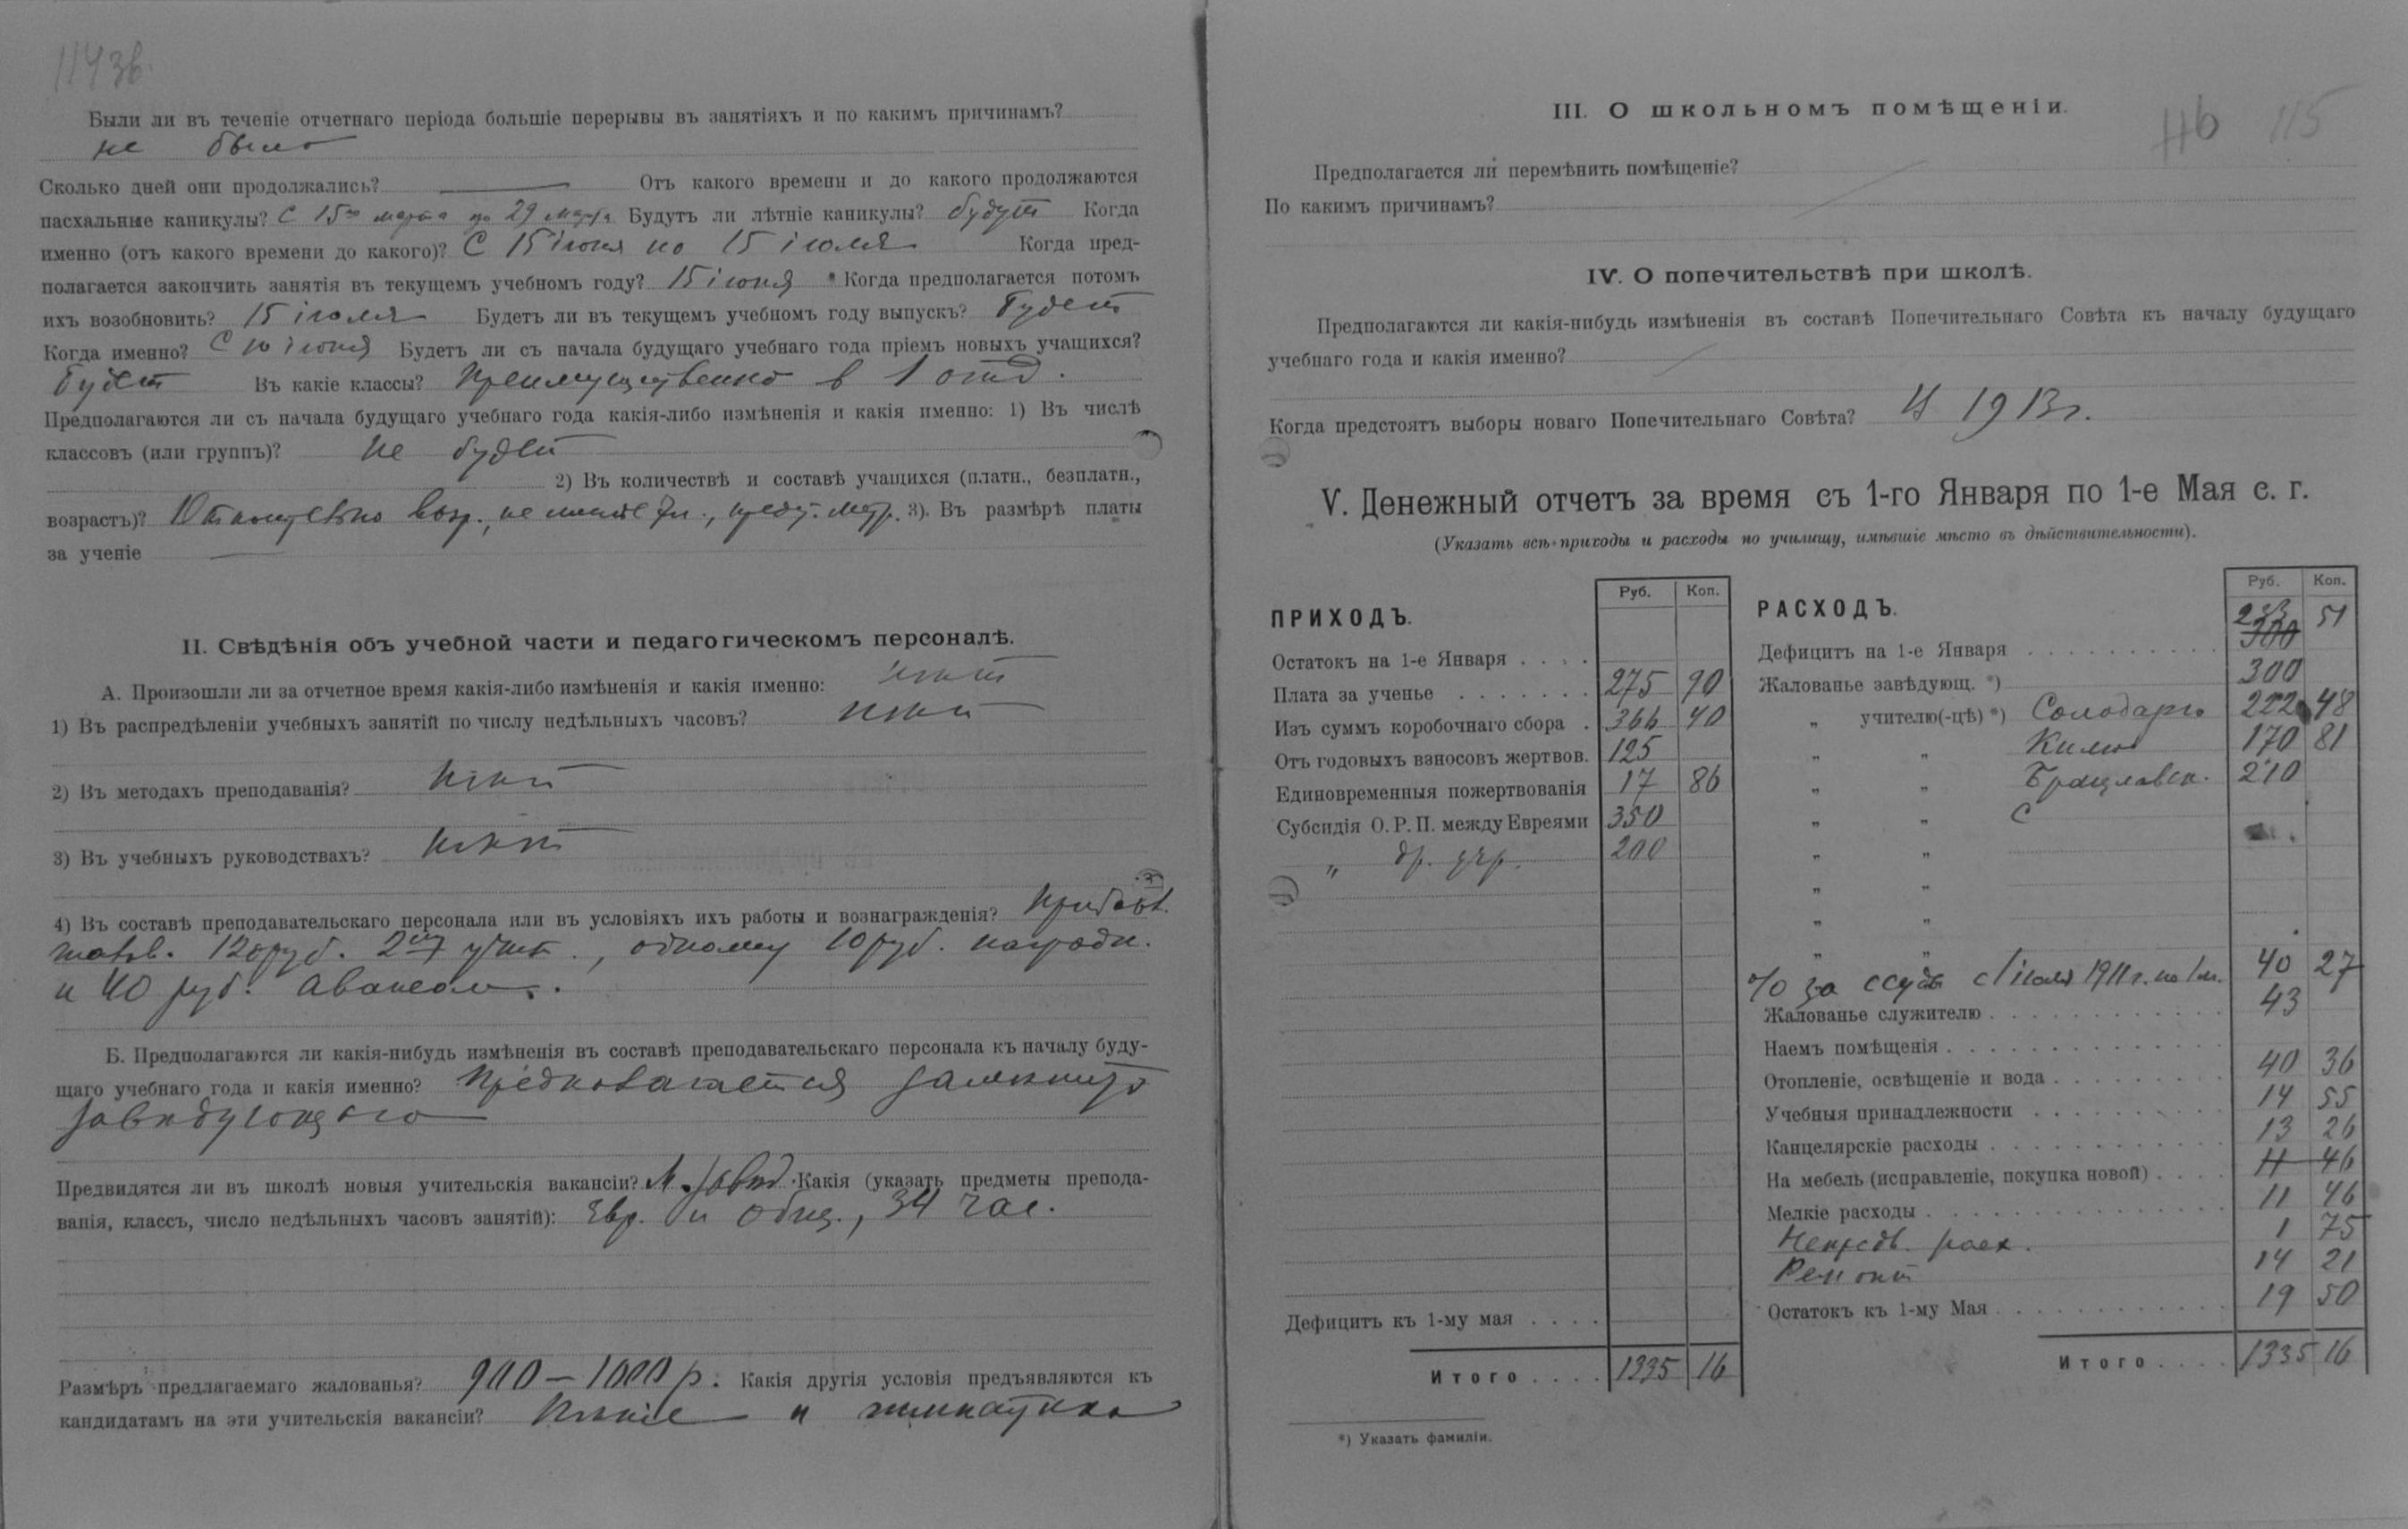 114 зв.
Были ли въ теченіе отчетнаго періода большіе перерывы въ занятіяхъ и по какимъ причинамъ?
не было
Сколько дней они продолжались? — Отъ какого времени и до какого продолжаются
пасхальные каникулы? С 15го марта по 29 марта Будутъ ли лѣтніе каникулы? будут Когда
именно (отъ какого времени до какого)? С 15 іюня по 15 іюля Когда пред-
полагается закончить занятія въ текущемъ учебномъ году? 15 іюня Когда предполагается потомъ
ихъ возобновить? 15 іюля Будетъ ли въ текущемъ учебномъ году выпускъ? Будет
Когда именно? С 10 іюня Будетъ ли съ начала будущаго учебнаго года пріемъ новыхъ учащихся?
Будет Въ какіе классы? Преимущественно в 1 отд.
Предполагаются ли съ начала будущаго учебнаго года какія-либо измѣненія и какія именно: 1) Въ числѣ
классовъ (или группъ)? Не будет
2) Въ количествѣ и составѣ учащихся (платн., безплатн.,
возрастъ)? возр., не 3). Въ размѣрѣ платы
за ученіе —
II. Свѣдѣнія объ учебной части и педагогическомъ персоналѣ.
А. Произошли ли за отчетное время какія-либо измѣненія и какія именно: нѣт
1) Въ распредѣленіи учебныхъ занятій по числу недѣльныхъ часовъ? нѣт
2) Въ методахъ преподаванія? Нѣт
3) Въ учебныхъ руководствахъ? Нѣт
4) Въ составѣ преподавательскаго персонала или въ условіяхъ ихъ работы и вознагражденія? Прибавл.
120 руб. 2му учит., одному 10 руб. наградн.
и 40 руб. авансом.
Б. Предполагаются ли какія-нибудь измѣненія въ составѣ преподавательскаго персонала къ началу буду-
щаго учебнаго года и какія именно? Предполагается
завѣдующаго
Предвидятся ли въ школѣ новыя учительскія вакансіи? завѣд. Какія (указать предметы препода-
ванія, классъ, число недѣльныхъ часовъ занятій): Евр. и общ., 34 час.
Размѣръ предлагаемаго жалованья? 900—1000 р. Какія другія условія предъявляются къ
кандидатамъ на эти учительскія вакансіи? Пѣніе и гимнастика
116 115
III. О школьномъ помѣщеніи.
Предполагается ли перемѣнить помѣщеніе?
По какимъ причинамъ?
IV. О попечительствѣ при школѣ.
Предполагаются ли какія-нибудь измѣненія въ составѣ Попечительнаго Совѣта къ началу будущаго
учебнаго года и какія именно?
Когда предстоятъ выборы новаго Попечительнаго Совѣта? 1913 г.
V. Денежный отчетъ за время съ 1-го Января по 1-е Мая с. г.
(Указать всѣ приходы и расходы по училищу, имѣвшіе мѣсто въ дѣйствительности).
ПРИХОДЪ. Руб. Коп.
Остатокъ на 1-е Января . . . .
Плата за ученье . . . . . . . 275 90
Изъ суммъ коробочнаго сбора . 366 40
Отъ годовыхъ взносовъ жертвов. 125
Единовременныя пожертвованія 17 86
Субсидія О. Р. П. между Евреями 350
„ др. учр. 200
Дефицитъ къ 1-му мая . . . .
Итого . . . . 1335 16
РАСХОДЪ. Руб. Коп.
Дефицитъ на 1-е Января . . . . . . . . . . 233 51
300
Жалованье завѣдующ. *) 300
„ учителю(-цѣ) *) Солодарь 222 48
„ „ 170 81
„ „ Брацлавск. 210
„ „ С
„ „
„ „
„ „
„ „
% за ссуду с 1 іюля 1911 г. по 1 м. 40 27
Жалованье служителю . . . . . . . . . . . . 43
Наемъ помѣщенія . . . . . . . . . . . . . .
Отопленіе, освѣщеніе и вода . . . . . . . . . 40 36
Учебныя принадлежности . . . . . . . . . . 14 55
Канцелярскіе расходы . . . . . . . . . . . . 13 26
На мебель (исправленіе, покупка новой) . . . . 11 46
Мелкіе расходы . . . . . . . . . . . . . . . 11 46
Непредв. расх. 1 75
Ремонт 14 21
Остатокъ къ 1-му Мая . . . . . . . . . . . . 19 50
Итого . . . . 1335 16
*) Указать фамиліи.